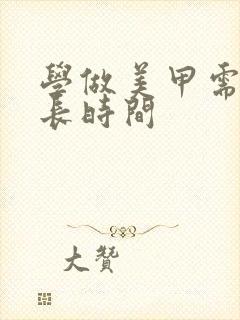 學做美甲需
長時間
大贊